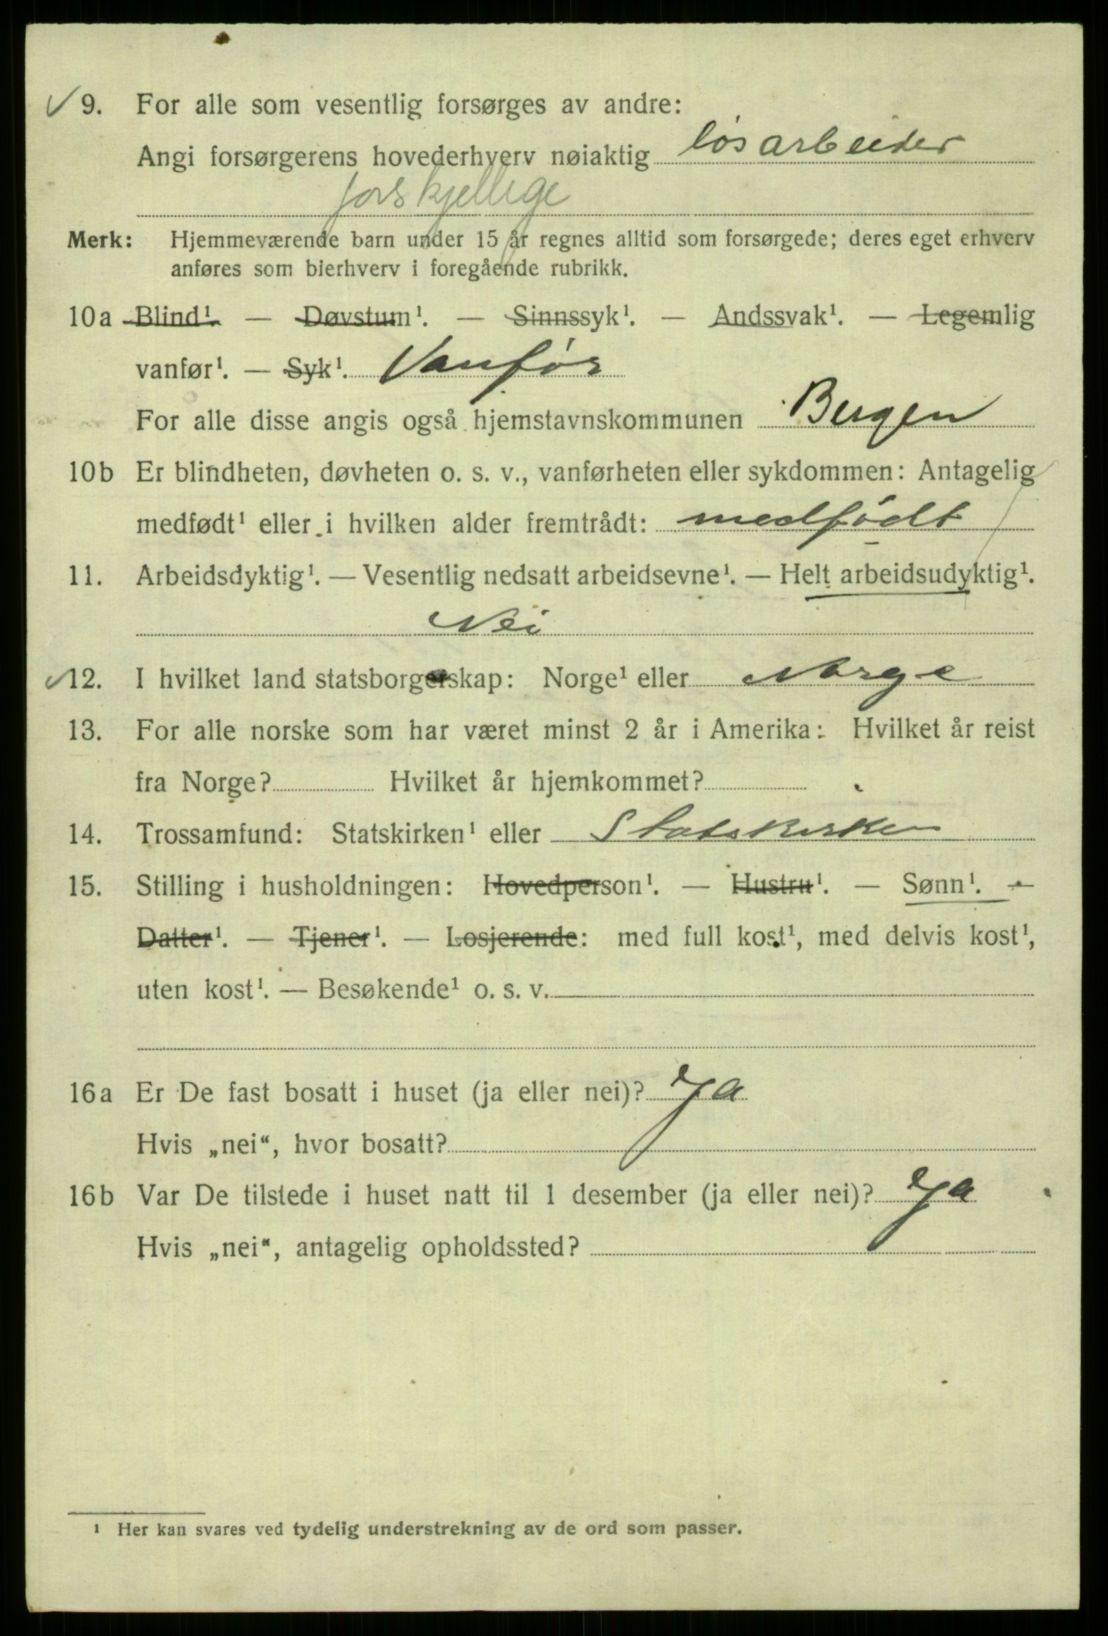 9. For alle som vesentlig forsørges av andre:
Angi forsørgerens hovederhverv nøiaktig løsarbeider
forskjellige
Merk: Hjemmeværende barn under 15 år regnes alltid som forsørgede; deres eget erhverv
anføres som bierhverv i foregående rubrikk.
10a Blind¹. — Døvstum¹. — Sinnssyk¹. — Andssvak¹. — Legemlig
vanfør¹. — Syk¹. Vanfør
For alle disse angis også hjemstavnskommunen Bergen
10b Er blindheten, døvheten o. s. v., vanførheten eller sykdommen: Antagelig
medfødt¹ eller i hvilken alder fremtrådt: medfødt
11. Arbeidsdyktig¹. — Vesentlig nedsatt arbeidsevne¹. — Helt arbeidsudyktig¹.
Nei
12. I hvilket land statsborgerskap: Norge¹ eller Norge
13. For alle norske som har været minst 2 år i Amerika: Hvilket år reist
fra Norge? Hvilket år hjemkommet?
14. Trossamfund: Statskirken¹ eller Statskirken
15. Stilling i husholdningen: Hovedperson¹. — Hustru¹. — Sønn¹. —
Datter¹. — Tjener¹. — Losjerende: med full kost¹, med delvis kost¹,
uten kost¹. — Besøkende¹ o. s. v.
16a Er De fast bosatt i huset (ja eller nei)? Ja
Hvis „nei“, hvor bosatt?
16b Var De tilstede i huset natt til 1 desember (ja eller nei)? Ja
Hvis „nei“, antagelig opholdssted?
¹ Her kan svares ved tydelig understrekning av de ord som passer.